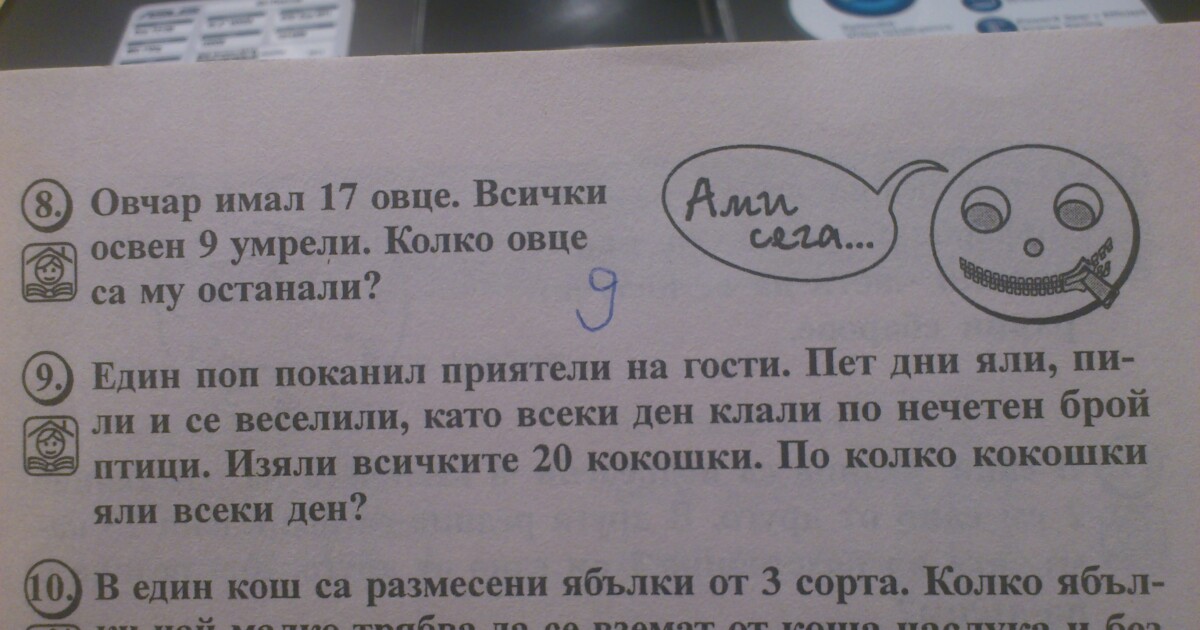 8. Овчар имал 17 овце. Всички
освен 9 умрели. Колко овце
са му останали?
9
Ами
сега...
9. Един поп поканил приятели на гости. Пет дни яли, пи-
ли и се веселили, като всеки ден клали по нечетен брой
птици. Изяли всичките 20 кокошки. По колко кокошки
яли всеки ден?
10. В един кош са размесени ябълки от 3 сорта. Колко ябъл-
ки най-малко трябва да се вземат от коша наслука и без